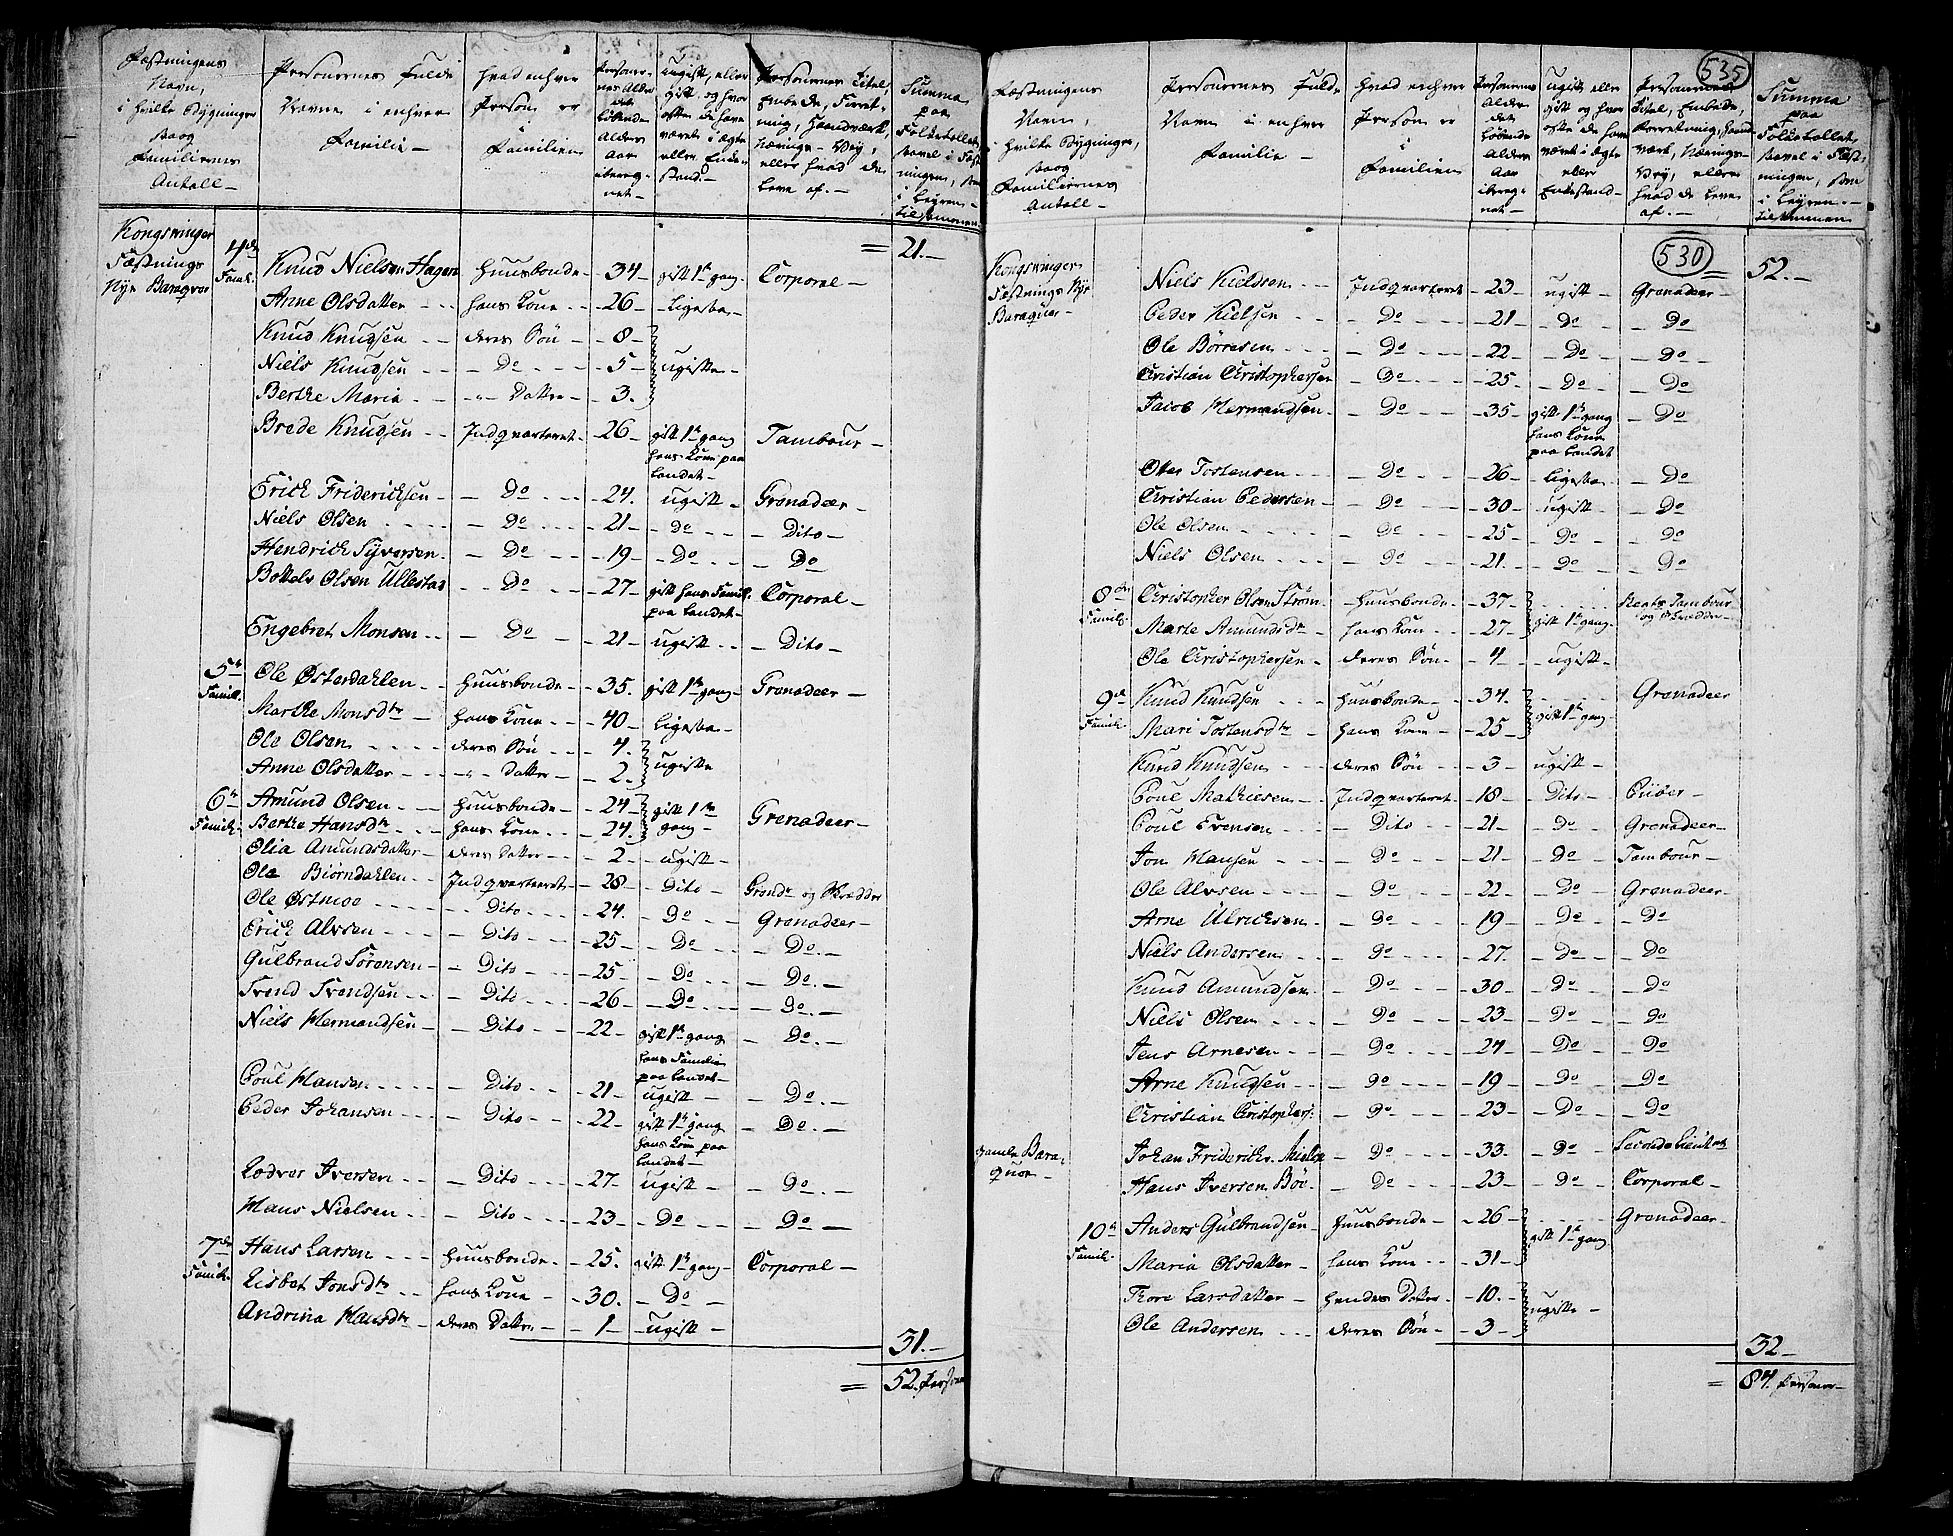 Fæstningens Navn, i hvilke Bygninger samt Familiernes Antall
Personernes fulde Navne i enhver Familie
hvad enhver Person er i Familien
Personernes Alder det løbende Alders Aar iberegnet
ugift, eller gift, og hvor ofte de have været i ægte eller Enkestand
Personernes Titel, Embede, Forretning, Haandværk, Nærings-Vej, eller hvad de leve af.
Summa paa Folketallet
Kongswinger Fæstnings Nye Baraquer
= 21.
4de Famil. Knud Nielsen Hagen huusbonde 34 gift 1te gang Corporal
Anne Olsdatter hans Kone 26 Ligesaa
Knud Knudsen deres Sön 8
Niels Knudsen Do 5 ugifte
Berthe Maria Datter 3.
Brede Knudsen Indqvarteret 26 gift 1te gang Tambour
hans Kone paa
Landet
Erick Fridericksen Do 24. ugift Grenadeer
Niels Olsen Do 21 do Dito
Hendrick Syversen Do 19 Do Do
Bottels Olsen Ullestad Do 27 gift hans Famil. Corporal
paa Landet
Engebret Monsen Do 21 ugift Dito
5te Famil. Ole Østerdahlen huusbonde 35. gift 1te gang Grenadeer
Marthe Monsdtr hans Kone 40 Ligesaa
Ole Olsen deres Sön 4.
Anne Olsdatter Datter 2. ugifte
6te Famil. Amund Olsen huusbonde 24 gift 1te
Berthe Hansdtr hans Kone 24. gang Grenadeer
Olia Amundsdatter deres Datter 2 ugift
Ole Biörndahlen Indqvarteret 28 Dito Grendr og Skrædder
Ole Østmoe Dito 24. Do Grenadeer
Erick Alvsen Dito 25 Do Do.
Gulbrand Sörensen Dito 25 Do Do.
Trond Trondsen Dito 26 Do Do.
Niels Hermandsen Dito 22 gift 1te gang Do.
hans Familie
paa Landet
Poul Hansen Dito 21 ugift Do.
Peder Johansen Dito 22 gift 1te gang Do.
hans Kone paa
Landet
Lodver Iversen Dito 27 ugift Do.
Hans Nielsen Dito 23 Do Do.
7de Famil. Hans Larsen huusbonde 25. gift 1te gang Corporal
Lisbet Jonsdtr hans Kone 30. Do
Andrina Hansdtr deres Datter 1 ugift
31.
= 52. Personer
535
Fæstningens Navn, i hvilke Bygninger, samt Familiernes Antall
Personernes fulde Navn i enhver Familie
hvad enhver Person er i Familien
Personernes Alder det løbende Alders Aar iberegnet
ugift eller gift og hvor ofte de have været i ægte eller Enkestand
Personernes Titel, Embede, Forretning, Haandværk, Nærings-Vej, eller hvad de leve af.
Summa paa Folketallet
Kongswinger Fæstnings Nye Baraquer
530
= 52.
Niels Kieldsen Indqvarteret 23 ugift Grenadeer
Peder Kielsen Do 21 Do Do
Ole Börresen Do 22 Do Do
Christian Christophersen Do 25 Do Do
Jacob Hermandsen Do 35 gift 1te gang Do
hans Kone
paa Landet
Oluer Tostensen Do 26 Ligesaa Do
Christian Pedersen Do 30 ugift Do
Ole Olsen Do 25 Do Do
Niels Olsen Do 21. Do Do
8de Famil. Christopher Olsen Ström huusbonde 37 Regts Tambour
Marte Amundsdr hans Kone 27 gift 1te gang og Skrædder
Ole Christophersen deres Sön 4 ugift
9de Famil. Knud Knudsen huusbonde 34. Grenadeer
Mari Tostensdtr hans Kone 25 gift 1te gang
Knud Knudsen deres Sön 3 ugift
Poul Mathiesen Indqvarteret 18 Dito Piiber
Poul Evensen Dito 21 Do Grenadeer
Jon Hansen Do 21 Do Tambour
Ole Alvsen Do 22 Do Grenadeer
Arne Ulricksen Do 19 Do Do
Niels Andersen Do 27. Do Do
Knud Amundsen Do 30 Do Do
Niels Olsen Do 23 Do Do
Jens Arnesen Do 24 Do Do
Arne Knudsen Do 19 Do Do
Christian Christophers: Do 23 Do Do
Gamle Baraquer
Johan Friderichs Do 33. Do Seconde Lieutnt
Hans Iversen Böe Do 23 Do Corporal
10de Famil. Anders Gulbrandsen huusbonde 26 Grenadeer
Maria Olsdatter hans Kone 31 gift 1te gang
Thore Larsdatter hendes Datter 10.
Ole Andersen deres Sön 3 ugifte
32
= 84. Personer